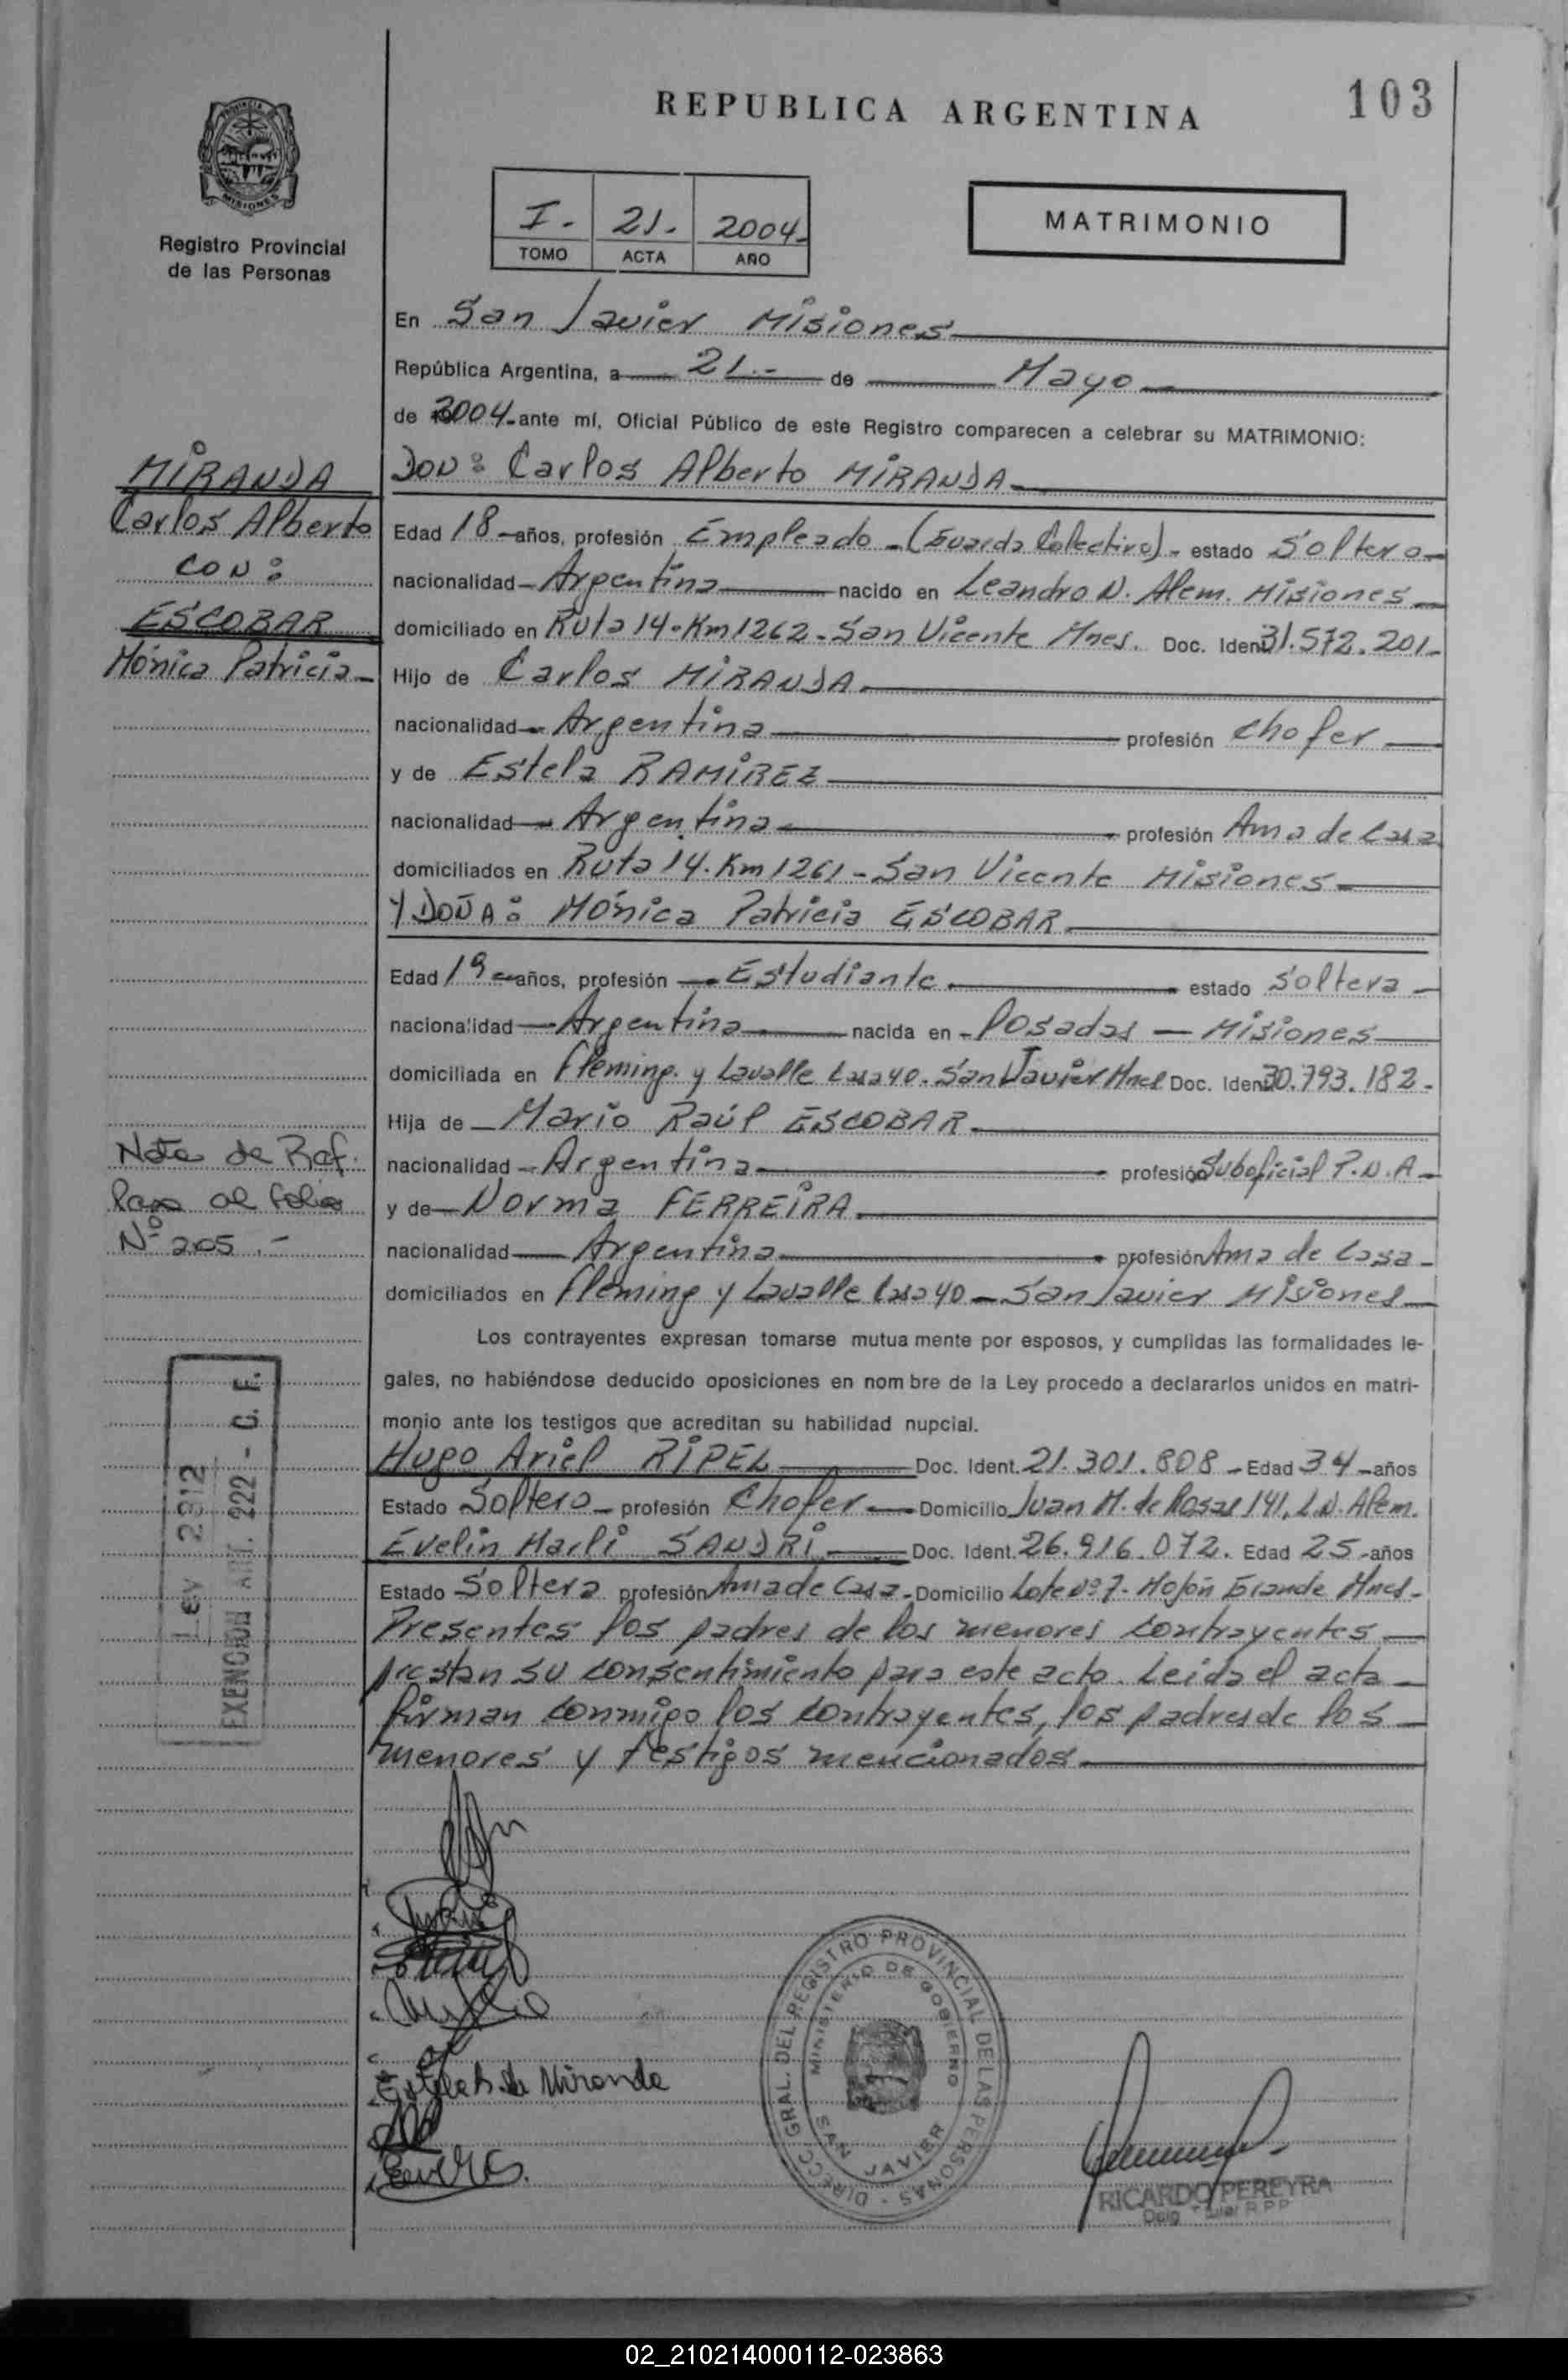 103
REPUBLICA ARGENTINA
PROVINCIA
MISIONES
Registro Provincial
de las Personas
I.- 21.- 2004-
TOMO ACTA AÑO
MATRIMONIO
En San Javier Misiones
República Argentina, a 21.- de Mayo
de 2004- ante mí, Oficial Público de este Registro comparecen a celebrar su MATRIMONIO:
MIRANDA
Carlos Alberto
CON:
ESCOBAR
Mónica Patricia
DON: Carlos Alberto MIRANDA
Edad 18 años, profesión Empleado - (Guarda Colectivo) - estado Soltero
nacionalidad Argentina nacido en Leandro N. Alem. Misiones
domiciliado en Ruta 14- Km 1262- San Vicente Mnes. Doc. Ident. 31.572.201-
Hijo de Carlos MIRANDA
nacionalidad Argentina profesión Chofer
y de Estela RAMIREZ
nacionalidad Argentina profesión Ama de Casa
domiciliados en Ruta 14. Km 1261 - San Vicente Misiones
Y DOÑA: Mónica Patricia ESCOBAR
Edad 19 años, profesión Estudiante estado Soltera
nacionalidad Argentina nacida en Posadas - Misiones
domiciliada en Fleming. y Lavalle Casa 40. San Javier Mnes Doc. Ident. 30.793.182.
Hija de Mario Raúl ESCOBAR
nacionalidad Argentina profesión Suboficial P.N.A
y de Norma FERREIRA
nacionalidad Argentina profesión Ama de Casa
domiciliados en Fleming y Lavalle Casa 40 - San Javier Misiones
Nota de Ref.
Pasa al folio
Nº 205.-
Los contrayentes expresan tomarse mutua mente por esposos, y cumplidas las formalidades le-
gales, no habiéndose deducido oposiciones en nom bre de la Ley procedo a declararlos unidos en matri-
monio ante los testigos que acreditan su habilidad nupcial.
Hugo Ariel RIPEL Doc. Ident. 21.301.808 - Edad 34 años
Estado Soltero profesión Chofer Domicilio Juan M. de Rosas 141. L.N. Alem.
Evelin Marli SANDRI Doc. Ident. 26.916.072. Edad 25 años
Estado Soltera profesión Ama de Casa - Domicilio Lote Nº 7- Mojón Grande Mnes-
Presentes los padres de los menores contrayentes
prestan su consentimiento para este acto. Leida el acta
firman conmigo los contrayentes, los padres de los
menores y testigos mencionados
Ley 2312
EXENCION ART. 222 - C. F.
Estela R. de Miranda
DIRECC. GRAL. DEL REGISTRO PROVINCIAL DE LAS PERSONAS
MINISTERIO DE GOBIERNO
SAN JAVIER
RICARDO PEREYRA
02_210214000112-023863